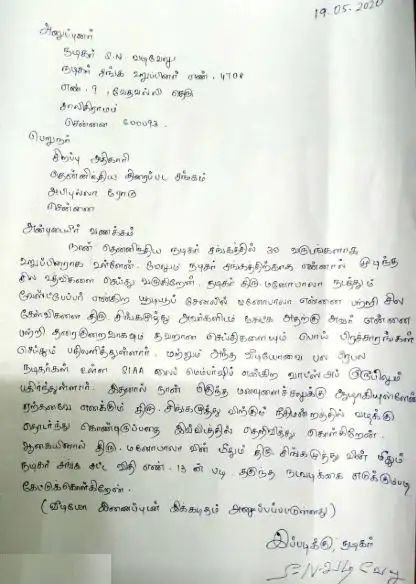 19-05-2020
அனுப்புனர்
நடிகர் S.N. வடிவேலு
நடிகர் சங்க உறுப்பினர் எண். 4708
எண். 9, வேதவல்லி தெரு
சாலிகிராமம்
சென்னை 600093.
பெறுநர்
சிறப்பு அதிகாரி
தென்னிந்திய திரைப்பட சங்கம்
அபிபுல்லா ரோடு
சென்னை
அன்புடையீர் வணக்கம்
நான் தென்னிந்திய நடிகர் சங்கத்தில் 30 வருடங்களாக
உறுப்பினராக உள்ளேன். மேலும் நடிகர் சங்கத்திற்காக என்னால் முடிந்த
சில உதவிகளை செய்து வருகிறேன். நடிகர் திரு. மனோபாலா நடத்தும்
வேஸ்ட்பேப்பர் என்கிற யூடியூப் சேனலில் மனோபாலா என்னை பற்றி சில
கேள்விகளை திரு. சிங்கமுத்து அவர்களிடம் கேட்க அதற்கு அவர் என்னை
பற்றி தரைகுறைவாகவும் தவறான செய்திகளையும் பொய் பிரச்சாரங்கள்
செய்தும் பதிவளித்துள்ளார். மற்றும் அந்த வீடியோவை பல பிரபல
நடிகர்கள் உள்ள SIAA லைப் மெம்பர்ஷிப் என்கிற வாட்ஸ்அப் குரூபிலும்
பகிர்ந்துள்ளார். இதனால் நான் மிகுந்த மனவுளைச்சலுக்கு ஆளாகியுள்ளேன்
ஏற்கனவே எனக்கும் திரு. சிங்கமுத்து விற்கும் நீதிமன்றத்தில் வழக்கு
தொடர்ந்து கொண்டிருப்பதை இவ்விடத்தில் தெரிவித்து கொள்கிறேன்.
ஆகையினால் திரு. மனோபாலா வின் மீதும் திரு. சிங்கமுத்து வின் மீதும்
நடிகர் சங்க சட்ட விதி எண். 13 ன் படி. தகுந்த நடவடிக்கை எடுக்கும்படி
கேட்டுக்கொள்கிறேன்.
(வீடியோ இணைப்புடன் இக்கடிதம் அனுப்பப்பட்டுள்ளது)
இப்படிக்கு, நடிகர்
S.N. வடிவேலு